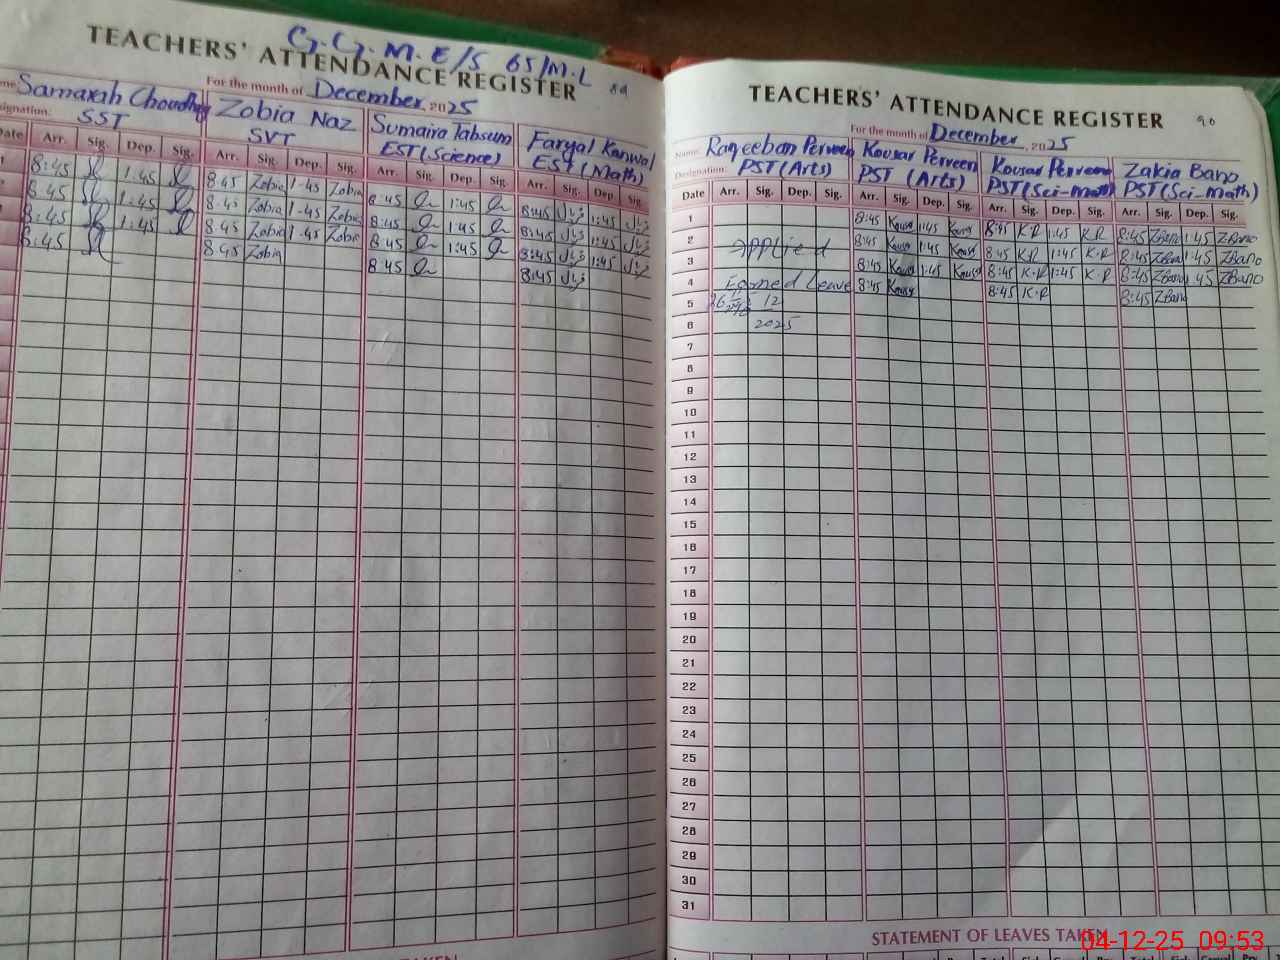 G.G.M.E/S 65/M.L
TEACHERS' ATTENDANCE REGISTER 89
For the month of December 2025
Samarah Choudhry Zobia Naz Sumaira Tabsum Faryal Kanwal
SST SVT EST (Science) EST (Math)
Date Arr. Sig. Dep. Sig. Arr. Sig. Dep. Sig. Arr. Sig. Dep. Sig. Arr. Sig. Dep. Sig.
8:45 1:45 8:45 Zobia 1-45 Zobia 8:45 1:45 8:45 1:45
8:45 1:45 8:45 Zobia 1-45 Zobia 8:45 1:45 8:45 1:45
8:45 1:45 8:45 Zobia 1-45 Zobia 8:45 1:45 8:45 1:45
8:45 8:45 Zobia 8:45 8:45
TEACHERS' ATTENDANCE REGISTER 90
For the month of December 2025
Name: Raqeeban Perveen Kousar Perveen Kousar Perveen Zakia Bano
Designation: PST (Arts) PST (Arts) PST (Sci-math) PST (Sci-Math)
Date Arr. Sig. Dep. Sig. Arr. Sig. Dep. Sig. Arr. Sig. Dep. Sig. Arr. Sig. Dep. Sig.
1 8:45 Kousr 1:45 Kousr 8:45 K.P 1:45 K.P 8:45 ZBano 1:45 ZBano
2 Applied 8:45 Kousr 1:45 Kousr 8:45 K.P 1:45 K.P 8:45 ZBano 1:45 ZBano
3 8:45 Kousr 1:45 Kousr 8:45 K.P 1:45 K.P 8:45 ZBano 1:45 ZBano
4 Earned Leave 8:45 Kousr 8:45 K.P 8:45 ZBano
5 12
6 2025
7
8
9
10
11
12
13
14
15
16
17
18
19
20
21
22
23
24
25
26
27
28
29
30
31
STATEMENT OF LEAVES TAKEN
04-12-25 09:53